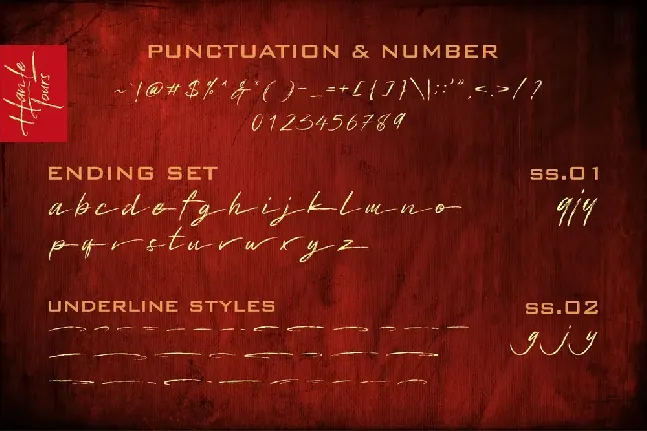 Hanle
Yours
PUNCTUATION & NUMBER
~`!@#$%^&*()-_=+[{]}\|;:'",<.>/?
0123456789
ENDING SET
ss.01
abcdefghijklmno
gjy
pqrstuvwxyz
UNDERLINE STYLES
ss.02
gjy